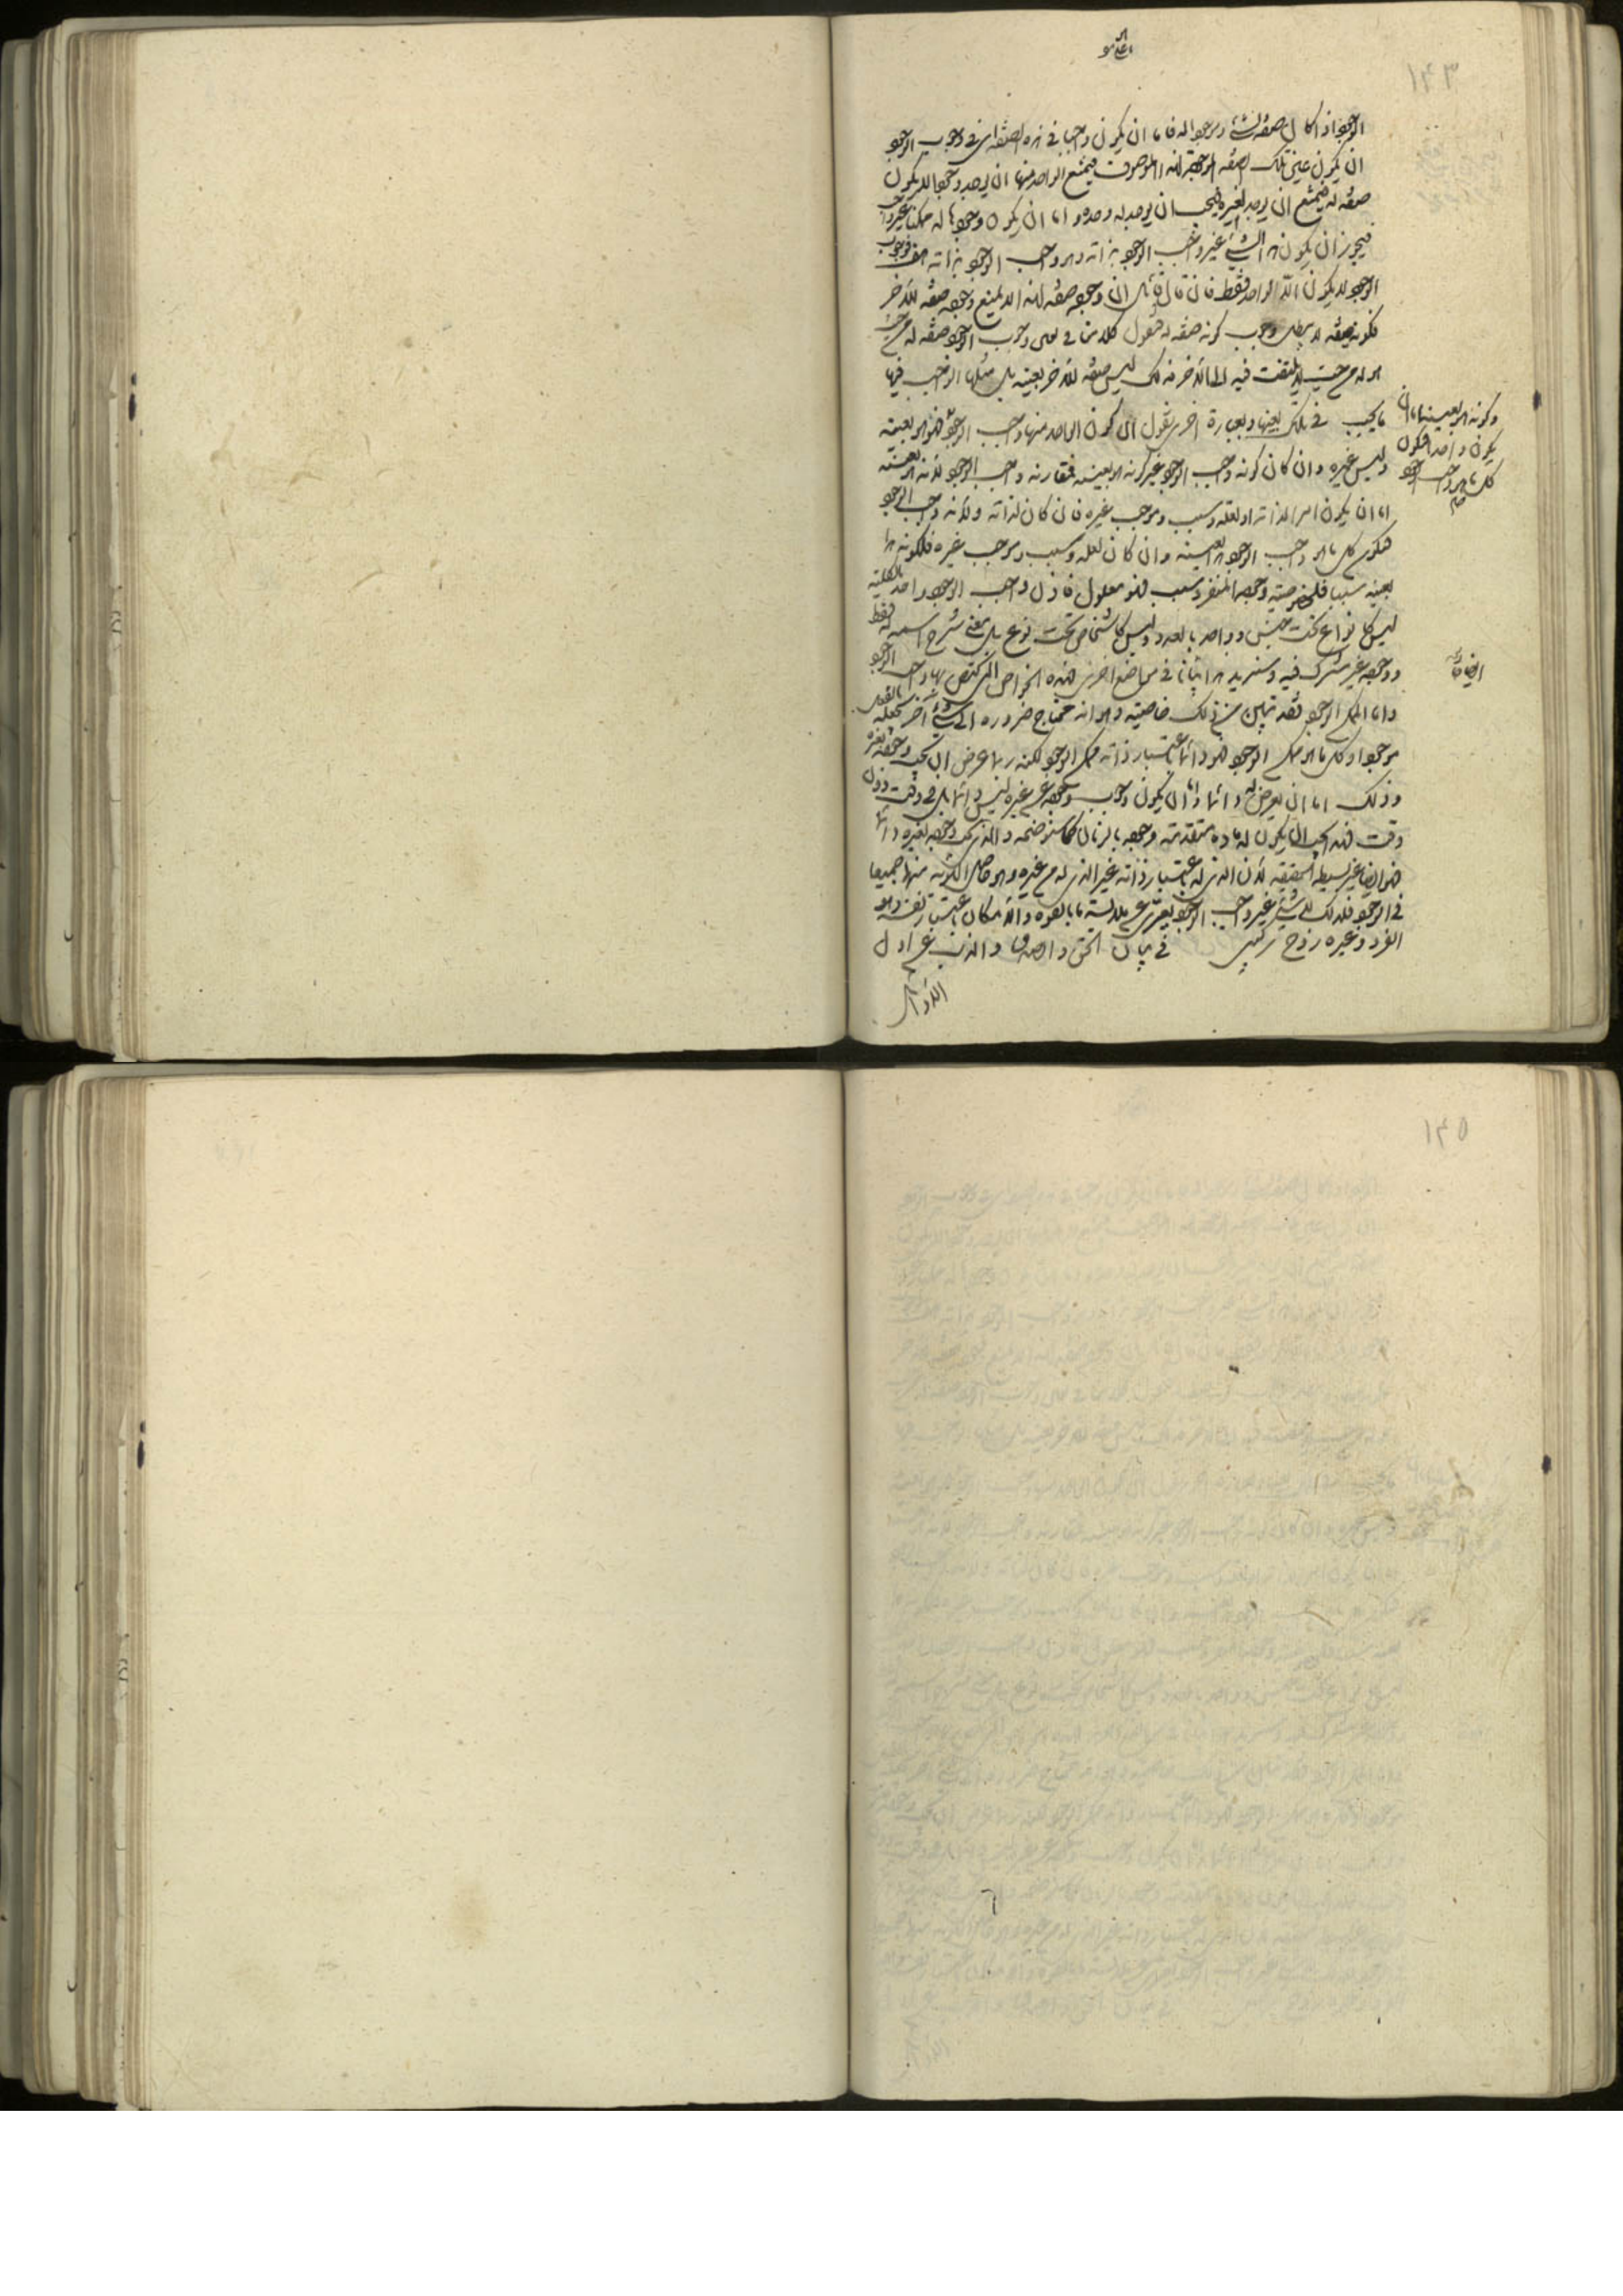 الوجود اذا كان صفة لشئ وموجودا له فاما ان يكون واجبا في هذه الصفة اى في وجوب الوجود
ان يكون عين تلك الصفة الموجودة لهذا الموصوف فيمتنع الواحد منها ان يوجد وجودا لا يكون
صفة له فيمتنع ان يوجد لغيره فيجب ان يوجد له وحده واما ان يكون وجودها له ممكنا غير واجب
فيجوز ان يكون هذا الشئ غير واجب الوجود بذاته وهو واجب الوجود بذاته هف فوجوب
الوجود لا يكون الا لواحد فقط فان قال قائل ان وجوده صفة لهذا لا يمنع وجوده صفة للآخر
فكونه صفة له لا يبطل وجوب كونه صفة له فنقول كلامنا في تعين وجوب الوجود صفة له من حيث
هو له من حيث لا يلتفت فيه الى الآخر فذلك ليس صفة للآخر بعينه بل مثلها الواجب فيها
ما يجب في تلك بعينها وبعبارة اخرى نقول ان كون الواحد منها واجب الوجود
وكونه هو بعينه اما ان
يكون واحدا فيكون
كل ما هو واجب الوجود
فهو هو بعينه
وليس غيره وان كان كونه واجب الوجود غير كونه هو بعينه فمقارنة واجب الوجود لانه هو بعينه
اما ان يكون امرا لذاته او لعلة وسبب وموجب غيره فان كان لذاته ولانه واجب الوجود
فيكون كل ما هو واجب الوجود هذا بعينه وان كان لعلة وسبب وموجب غيره فلكونه هذا
بعينه سبب فلخصوصية وجوده المنفرد سبب فهو معلول فاذن واجب الوجود واحد بالكلية
ليس كانواع تحت جنس وواحد بالعدد وليس كاشخاص تحت نوع بل معنى شرح اسمه له فقط
ووجوده غير مشترك فيه وسنزيد هذا ايضاحا في موضع آخر فهذه الخواص التي يختص بها واجب الوجود
واما الممكن الوجود فقد تبين من ذلك خاصيته وهو انه يحتاج ضرورة الى شئ آخر يجعله بالفعل
موجودا وكل ما هو ممكن الوجود فهو دائما باعتبار ذاته ممكن الوجود لكنه ربما عرض ان يجب وجوده بغيره
وذلك اما ان يعرض له دائما واما ان يكون وجوب وجوده عن غيره ليس دائما بل في وقت دون
وقت فهذا يجب ان يكون له مادة متقدمة وجوده بالزمان كما سنوضحه والذي يجب وجوده بغيره دائما
فهو ايضا غير بسيط الحقيقة لان الذي له باعتبار ذاته غير الذي له من غيره وهو حاصل الهوية منهما جميعا
في الوجود فلذلك لا شئ غير واجب الوجود يعرى عن ملابسة ما بالقوة والامكان باعتبار نفسه وهو
الفرد وغيره زوج تركيبى في بيان الحق والصدق والذب عن اول
الاقاويل